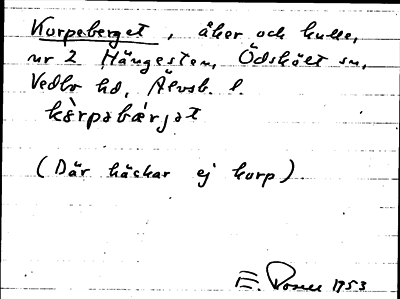 Korpeberget, åker och kulle,
nr 2 Hängesten, Ödskölt sn,
Vedbo hd, Älvsb. l.
kårpabærjat
(Där häckar ej korp).
E. 1953